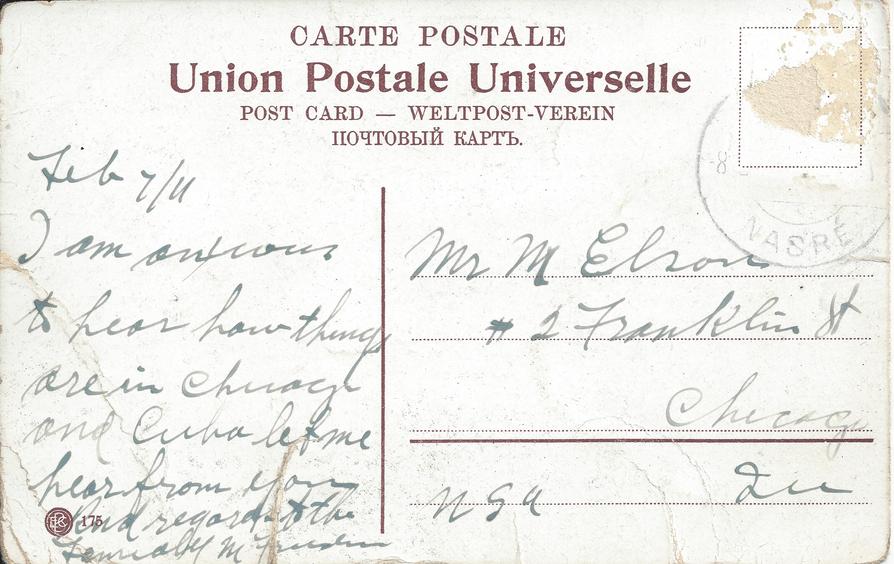 CARTE POSTALE
Union Postale Universelle
POST CARD — WELTPOST-VEREIN
ПОЧТОВЫЙ КАРТЪ.
Feb 7/11
I am anxious
to hear how things
are in Chicago
and Cuba let me
hear from you
kind regards to the
175
Mr M Elson
# 2 Franklin St
Chicago
Ill